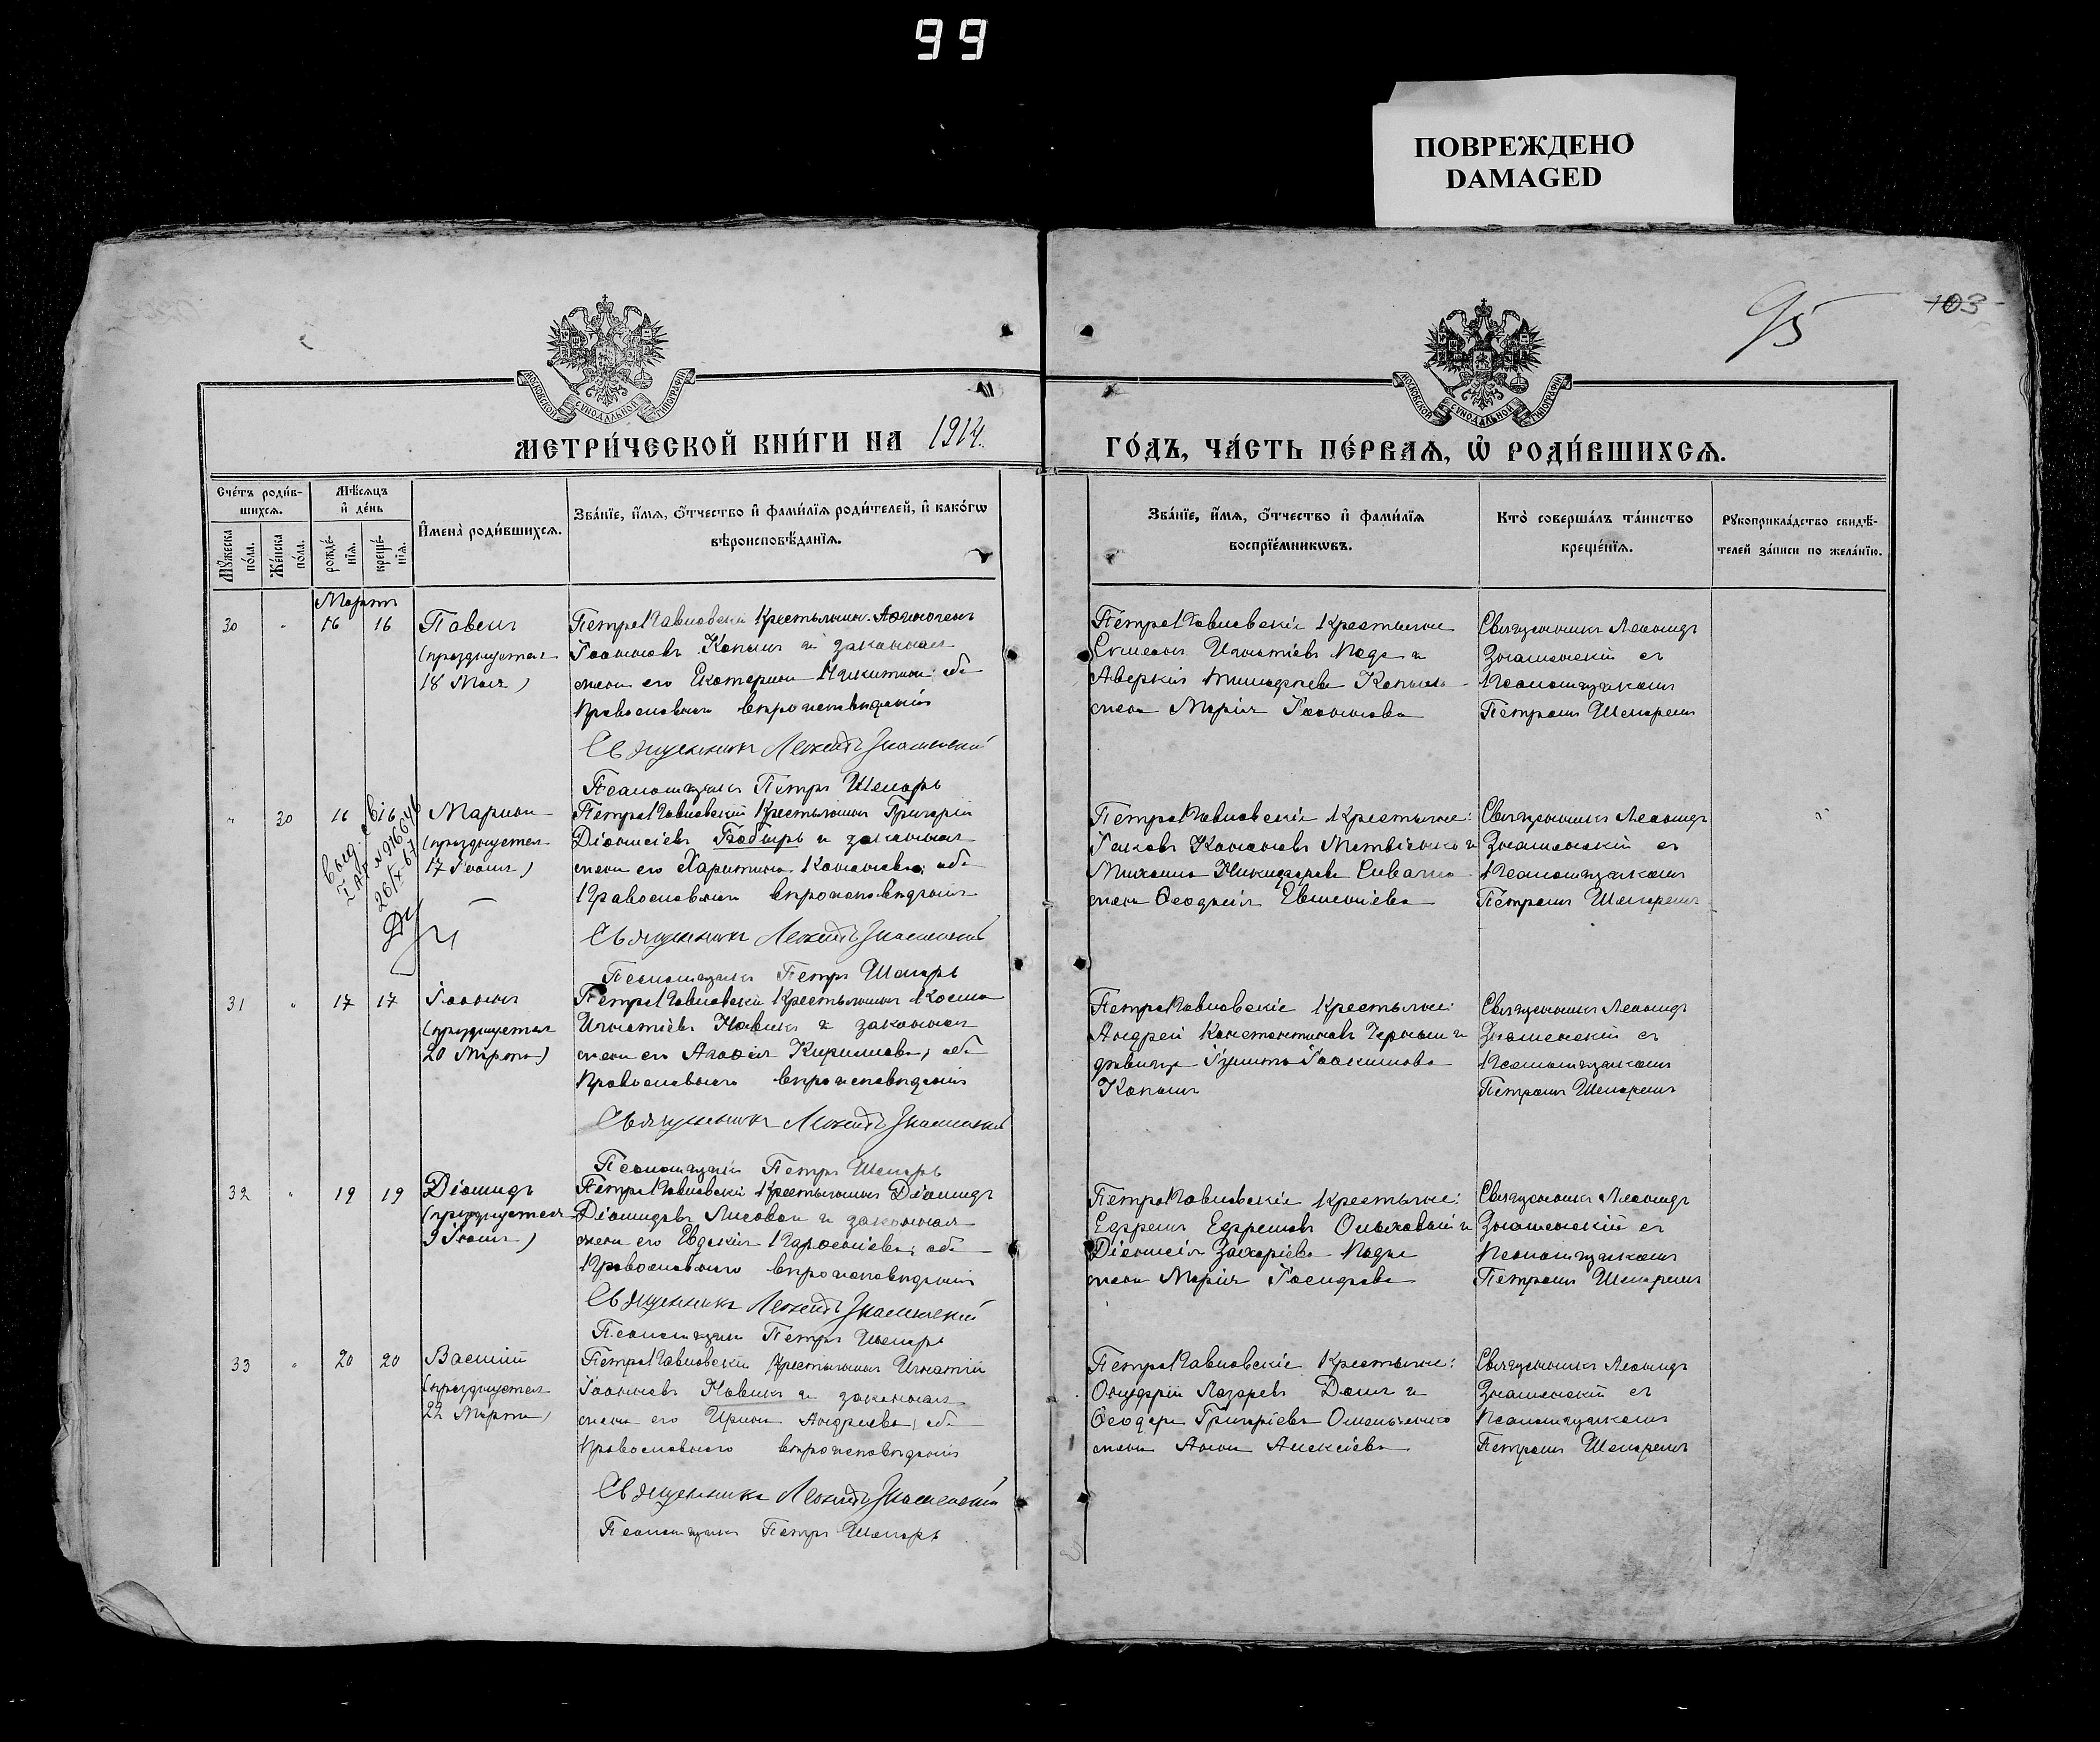 99
ПОВРЕЖДЕНО
DAMAGED
95
103
МОСКОВСКОЙ СУНОДАЛЬНОЙ ТИПОГРАФІИ
МОСКОВСКОЙ СУНОДАЛЬНОЙ ТИПОГРАФІИ
МЕТРИ́ЧЕСКОЙ КНИ́ГИ НА 1914.
ГО́ДЪ, ЧА́СТЬ ПЕ́РВАѦ, Ѡ҆ РОДИ́ВШИХСѦ.
Сче́тъ роди́в-
шихсѧ.
Мꙋ́жеска по́ла.
Же́нска по́ла.
Мѣ́сѧцъ
и҆ де́нь
рожде́-
нїѧ.
креще́-
нїѧ.
И҆мена̀ роди́вшихсѧ.
Зва́нїе, и҆́мѧ, ѻ҆́тчество и҆ фами́лїѧ роди́телей, и҆ како́гѡ
вѣроисповѣ́данїѧ.
Зва́нїе, и҆́мѧ, ѻ҆́тчество и҆ фами́лїѧ
воспрїе́мникѡвъ.
Кто̀ соверша́лъ та́инство
креще́нїѧ.
Рꙋкоприкла́дство свидѣ́-
телей за́писи по жела́нїю.
Мартъ
30 " 16 16 Павелъ
(празднуется
18 Мая)
ПетроПавловскій Крестьянинъ
Іоанновъ Копыл и законная
жена его Екатерина Никитина; оба
Православнаго вѣроисповѣданія
Священникъ Леонидъ Знаменскій
Псаломщикъ Петръ Шепарь
ПетроПавловскіе Крестьяне
Симеонъ Игнатіевъ и
Аверкія Копыл
жена Марія Іоаннова
Священникъ Леонидъ
Знаменскій съ
Псаломщикомъ
Петромъ Шепаремъ
" 30 16 16 Марина
(празднуется
17 Іюля)
Выд.
26/X-67
ПетроПавловскій Крестьянинъ Григорій
Діонисіевъ Бобырь и законная
жена его Харитина Кононова; оба
Православнаго вѣроисповѣданія
Священникъ Леонидъ Знаменскій
Псаломщикъ Петръ Шепарь
ПетроПавловскіе Крестьяне:
Іаковъ Кононовъ и
Михаила Никифорова
жена Ѳеодосія Евгеніева
Священникъ Леонидъ
Знаменскій съ
Псаломщикомъ
Петромъ Шепаремъ
31 " 17 17 Іоаннъ
(празднуется
20 Марта)
ПетроПавловскій Крестьянинъ Косма
Игнатіевъ Новикъ и законная
жена его Агаѳія Кириллова; оба
Православнаго вѣроисповѣданія
Священникъ Леонидъ Знаменскій
Псаломщикъ Петръ Шепарь
ПетроПавловскіе Крестьяне:
Андрей Константиновъ Черныш и
дѣвица Іоакимова
Копыл
Священникъ Леонидъ
Знаменскій съ
Псаломщикомъ
Петромъ Шепаремъ
32 " 19 19 Діомидъ
(празднуется
3 Іюля)
ПетроПавловскій Крестьянинъ Діомидъ
Діомидовъ Лисовой и законная
жена его Евдокія Парѳеніева; оба
Православнаго вѣроисповѣданія
Священникъ Леонидъ Знаменскій
Псаломщикъ Петръ Шепарь
ПетроПавловскіе Крестьяне:
Ефремъ Ефремовъ Ольховый и
Діонисія Захаріева
жена Марія Іосифова
Священникъ Леонидъ
Знаменскій съ
Псаломщикомъ
Петромъ Шепаремъ
33 " 20 20 Василій
(празднуется
22 Марта)
ПетроПавловскій Крестьянинъ Игнатій
Іоанновъ Новикъ и законная
жена его Ирина Андреева; оба
Православнаго вѣроисповѣданія
Священникъ Леонидъ Знаменскій
Псаломщикъ Петръ Шепарь
ПетроПавловскіе Крестьяне:
Онуфрій Лазаревъ и
Ѳеодора Григоріева Омельченко
жена Анна Алексіева
Священникъ Леонидъ
Знаменскій съ
Псаломщикомъ
Петромъ Шепаремъ